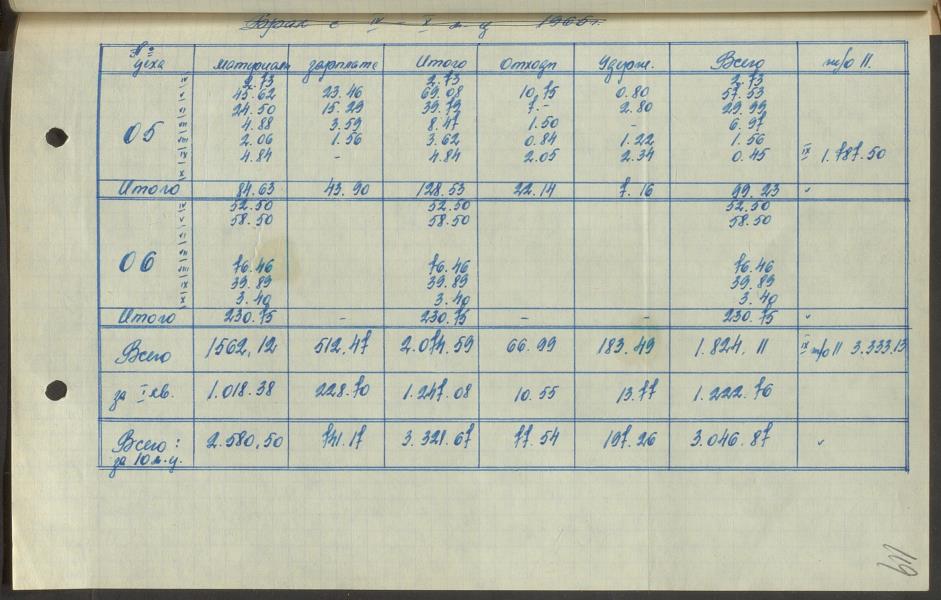 Брак с IV – X м-ц 1966г.
№ цеха материал зарплата Итого Отходы Удерж. Всего т/о 11.
2.73 2.73 2.73
45.62 23.46 69.08 10.75 0.80 57.53
24.50 15.29 39.79 7.- 2.80 29.99
4.88 3.59 8.47 1.50 - 6.97
05 2.06 1.56 3.62 0.84 1.22 1.56
4.84 - 4.84 2.05 2.34 0.45 IX 1.787.50
Итого 84.63 43.90 128.53 22.14 7.16 99.23
52.50 52.50 52.50
58.50 58.50 58.50
06 76.46 76.46 76.46
39.89 39.89 39.89
3.40 3.40 3.40
Итого 230.75 - 230.75 - - 230.75
Всего 1562,12 512.47 2.074.59 66.99 183.49 1.824.11 IX т/о 11 3.333.13
за I кв. 1.018.38 228.70 1.247.08 10.55 13.77 1.222.76
Всего: 2.580,50 741.17 3.321.67 77.54 197.26 3.046.87
за 10 м.ц.